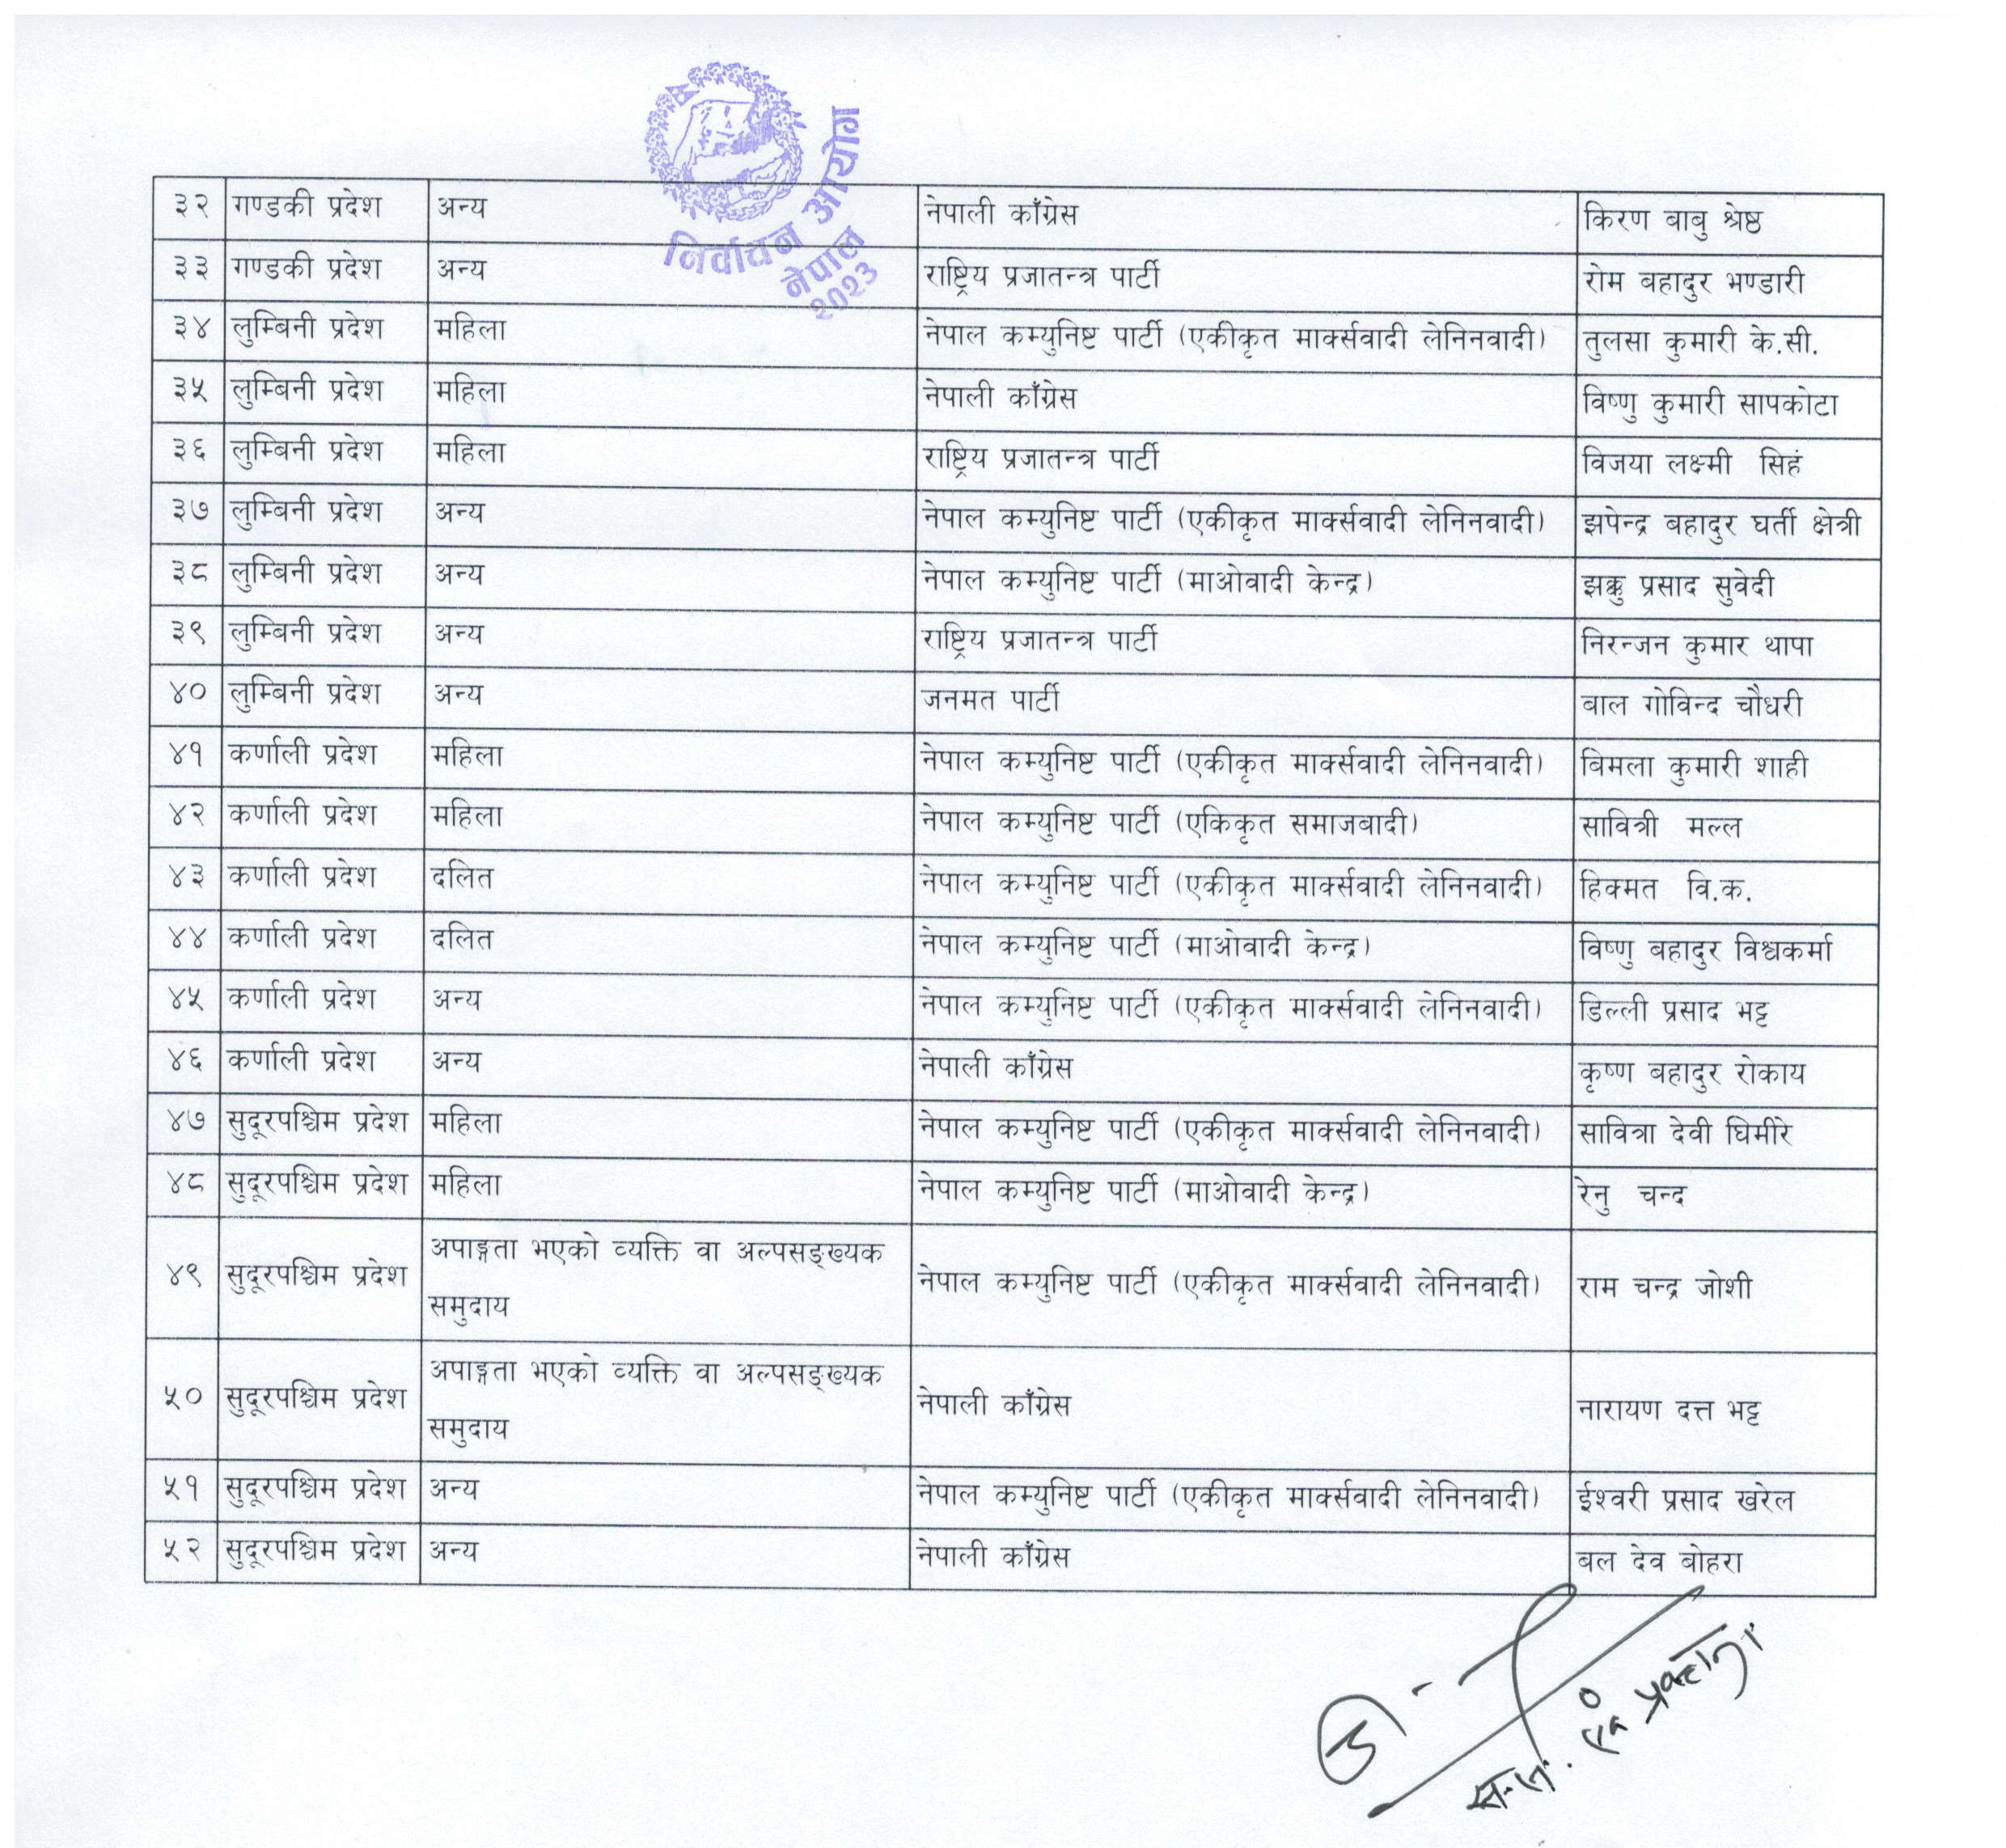 निर्वाचन आयोग
नेपाल
२०२३
३२ गण्डकी प्रदेश अन्य नेपाली काँग्रेस किरण बाबु श्रेष्ठ
३३ गण्डकी प्रदेश अन्य राष्ट्रिय प्रजातन्त्र पार्टी रोम बहादुर भण्डारी
३४ लुम्बिनी प्रदेश महिला नेपाल कम्युनिष्ट पार्टी (एकीकृत मार्क्सवादी लेनिनवादी) तुलसा कुमारी के.सी.
३५ लुम्बिनी प्रदेश महिला नेपाली काँग्रेस विष्णु कुमारी सापकोटा
३६ लुम्बिनी प्रदेश महिला राष्ट्रिय प्रजातन्त्र पार्टी विजया लक्ष्मी सिहं
३७ लुम्बिनी प्रदेश अन्य नेपाल कम्युनिष्ट पार्टी (एकीकृत मार्क्सवादी लेनिनवादी) झपेन्द्र बहादुर घर्ती क्षेत्री
३८ लुम्बिनी प्रदेश अन्य नेपाल कम्युनिष्ट पार्टी (माओवादी केन्द्र) झक्कु प्रसाद सुवेदी
३९ लुम्बिनी प्रदेश अन्य राष्ट्रिय प्रजातन्त्र पार्टी निरन्जन कुमार थापा
४० लुम्बिनी प्रदेश अन्य जनमत पार्टी बाल गोविन्द चौधरी
४१ कर्णाली प्रदेश महिला नेपाल कम्युनिष्ट पार्टी (एकीकृत मार्क्सवादी लेनिनवादी) बिमला कुमारी शाही
४२ कर्णाली प्रदेश महिला नेपाल कम्युनिष्ट पार्टी (एकिकृत समाजबादी) सावित्री मल्ल
४३ कर्णाली प्रदेश दलित नेपाल कम्युनिष्ट पार्टी (एकीकृत मार्क्सवादी लेनिनवादी) हिक्मत वि.क.
४४ कर्णाली प्रदेश दलित नेपाल कम्युनिष्ट पार्टी (माओवादी केन्द्र) विष्णु बहादुर विश्वकर्मा
४५ कर्णाली प्रदेश अन्य नेपाल कम्युनिष्ट पार्टी (एकीकृत मार्क्सवादी लेनिनवादी) डिल्ली प्रसाद भट्ट
४६ कर्णाली प्रदेश अन्य नेपाली काँग्रेस कृष्ण बहादुर रोकाय
४७ सुदूरपश्चिम प्रदेश महिला नेपाल कम्युनिष्ट पार्टी (एकीकृत मार्क्सवादी लेनिनवादी) सावित्रा देवी घिमीरे
४८ सुदूरपश्चिम प्रदेश महिला नेपाल कम्युनिष्ट पार्टी (माओवादी केन्द्र) रेनु चन्द
अपाङ्गता भएको व्यक्ति वा अल्पसङ्ख्यक
४९ सुदूरपश्चिम प्रदेश नेपाल कम्युनिष्ट पार्टी (एकीकृत मार्क्सवादी लेनिनवादी) राम चन्द्र जोशी
समुदाय
अपाङ्गता भएको व्यक्ति वा अल्पसङ्ख्यक
५० सुदूरपश्चिम प्रदेश नेपाली काँग्रेस नारायण दत्त भट्ट
समुदाय
५१ सुदूरपश्चिम प्रदेश अन्य नेपाल कम्युनिष्ट पार्टी (एकीकृत मार्क्सवादी लेनिनवादी) ईश्वरी प्रसाद खरेल
५२ सुदूरपश्चिम प्रदेश अन्य नेपाली काँग्रेस बल देव बोहरा